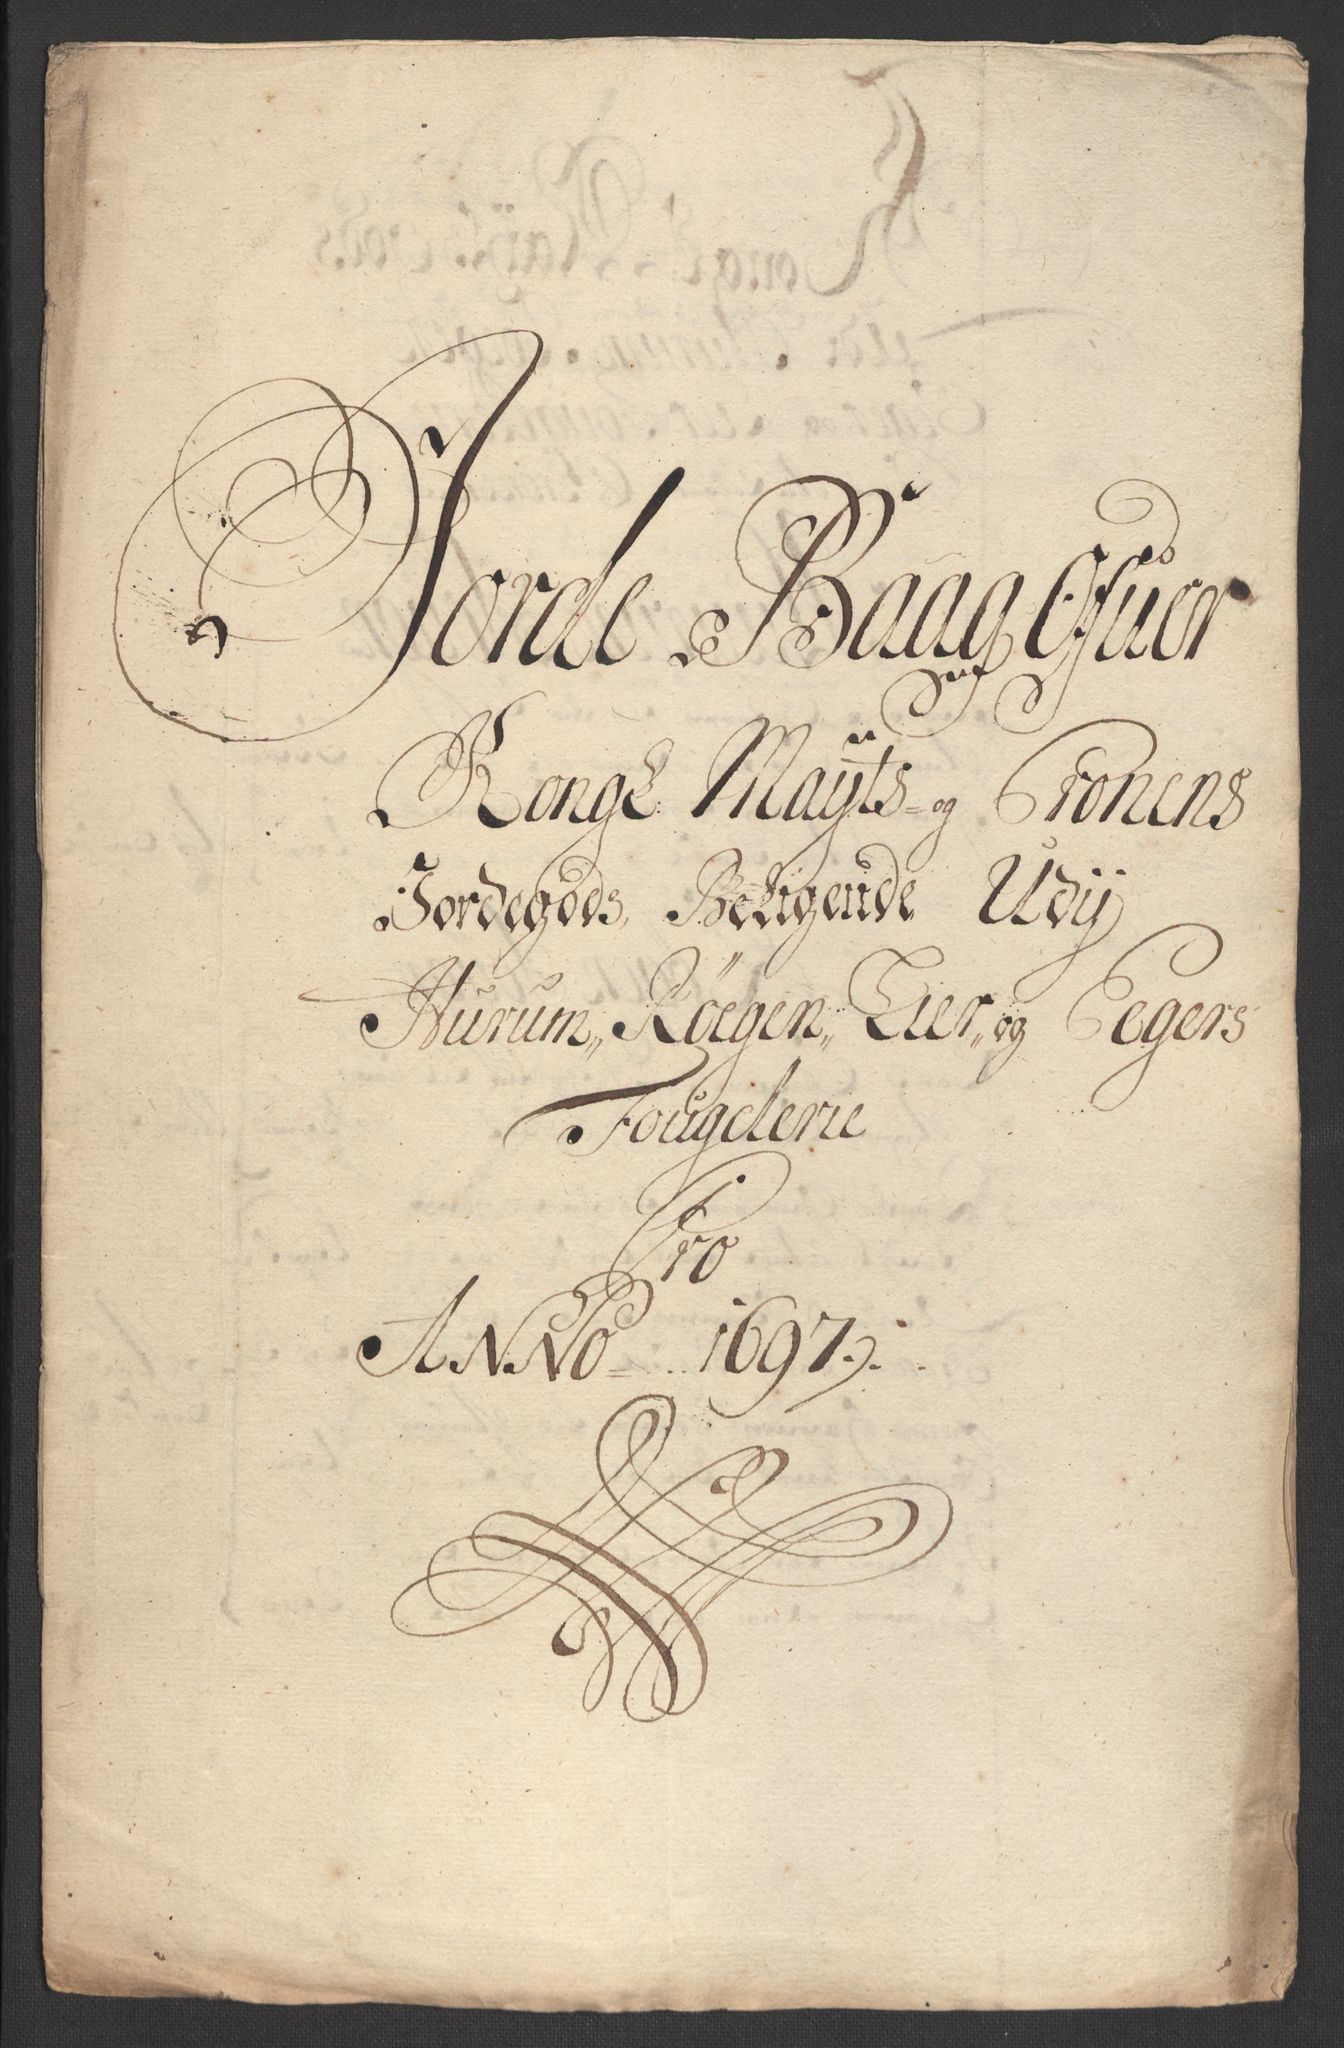 Jorde Baag Ofuer
Kongl: Maÿts= og Cronens
Jordegods, Beligende Udÿ
Hurum,, Röegen,, Lier,, og Eegers
Fougderie
Pro
ANNo 1697.